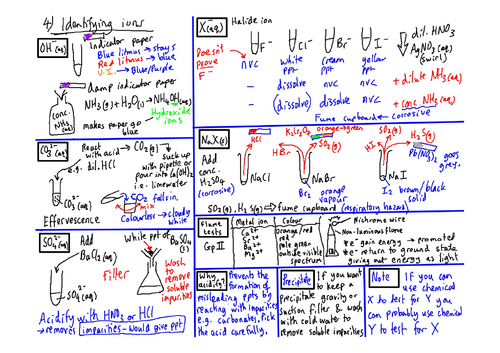 4) Identifying ions
OH⁻(aq)
Indicator paper
Blue litmus → stays
Red litmus → blue
U.I. → Blue/Purple
Damp indicator paper
NH₃(g) + H₂O(l) → NH₄OH(aq)
Hydroxide ions
makes paper go blue
conc. NH₃
CO₃²⁻(aq)
React with acid → CO₂(g)
e.g. dil. HCl
suck up with pipette or pour into Ca(OH)₂
i.e. limewater
CO₂ falls in,
mix
Colourless → cloudy white
Effervescence
SO₄²⁻(aq)
Add
BaCl₂(aq)
SO₄²⁻(aq)
White ppt of BaSO₄(s)
Filter
Wash to remove soluble impurities
Acidify with HNO₃ or HCl
→ removes impurities - would give ppt
X⁻(aq)
Halide ion
F⁻ Cl⁻ Br⁻ I⁻
dil. HNO₃
AgNO₃(aq)
(swirl)
Doesn't prove F⁻
nvc white ppt cream ppt yellow ppt
- dissolve nvc nvc
+ dilute NH₃(aq)
- (dissolve) dissolve nvc
+ conc. NH₃(aq)
Fume cupboard ← corrosive
NaX(s)
Add conc. H₂SO₄
(corrosive)
HCl
NaCl
K₂Cr₂O₇ orange → green
HBr
SO₂(g)
NaBr
Br₂ orange vapour
SO₂(g)
H₂S(g)
HI
Pb(NO₃)₂ goes grey.
NaI
I₂ brown/black solid
SO₂, H₂S (g) → fume cupboard (respiratory hazard)
Flame tests
Gp II
Metal ion Colour
Ca²⁺ Orange/red
Sr²⁺ red
Ba²⁺ pale green
Mg²⁺ outside visible spectrum
Nichrome wire
Non-luminous flame
* e⁻ gain energy → promoted
* e⁻ return to ground state
giving out energy as light
Why acidify?
Prevents the formation of misleading ppts by reacting with impurities e.g. carbonates, pick the acid carefully.
Precipitate
If you want to keep a precipitate gravity or suction filter & wash with cold water to remove soluble impurities
Note
If you can use chemical X to test for Y you can probably use chemical Y to test for X